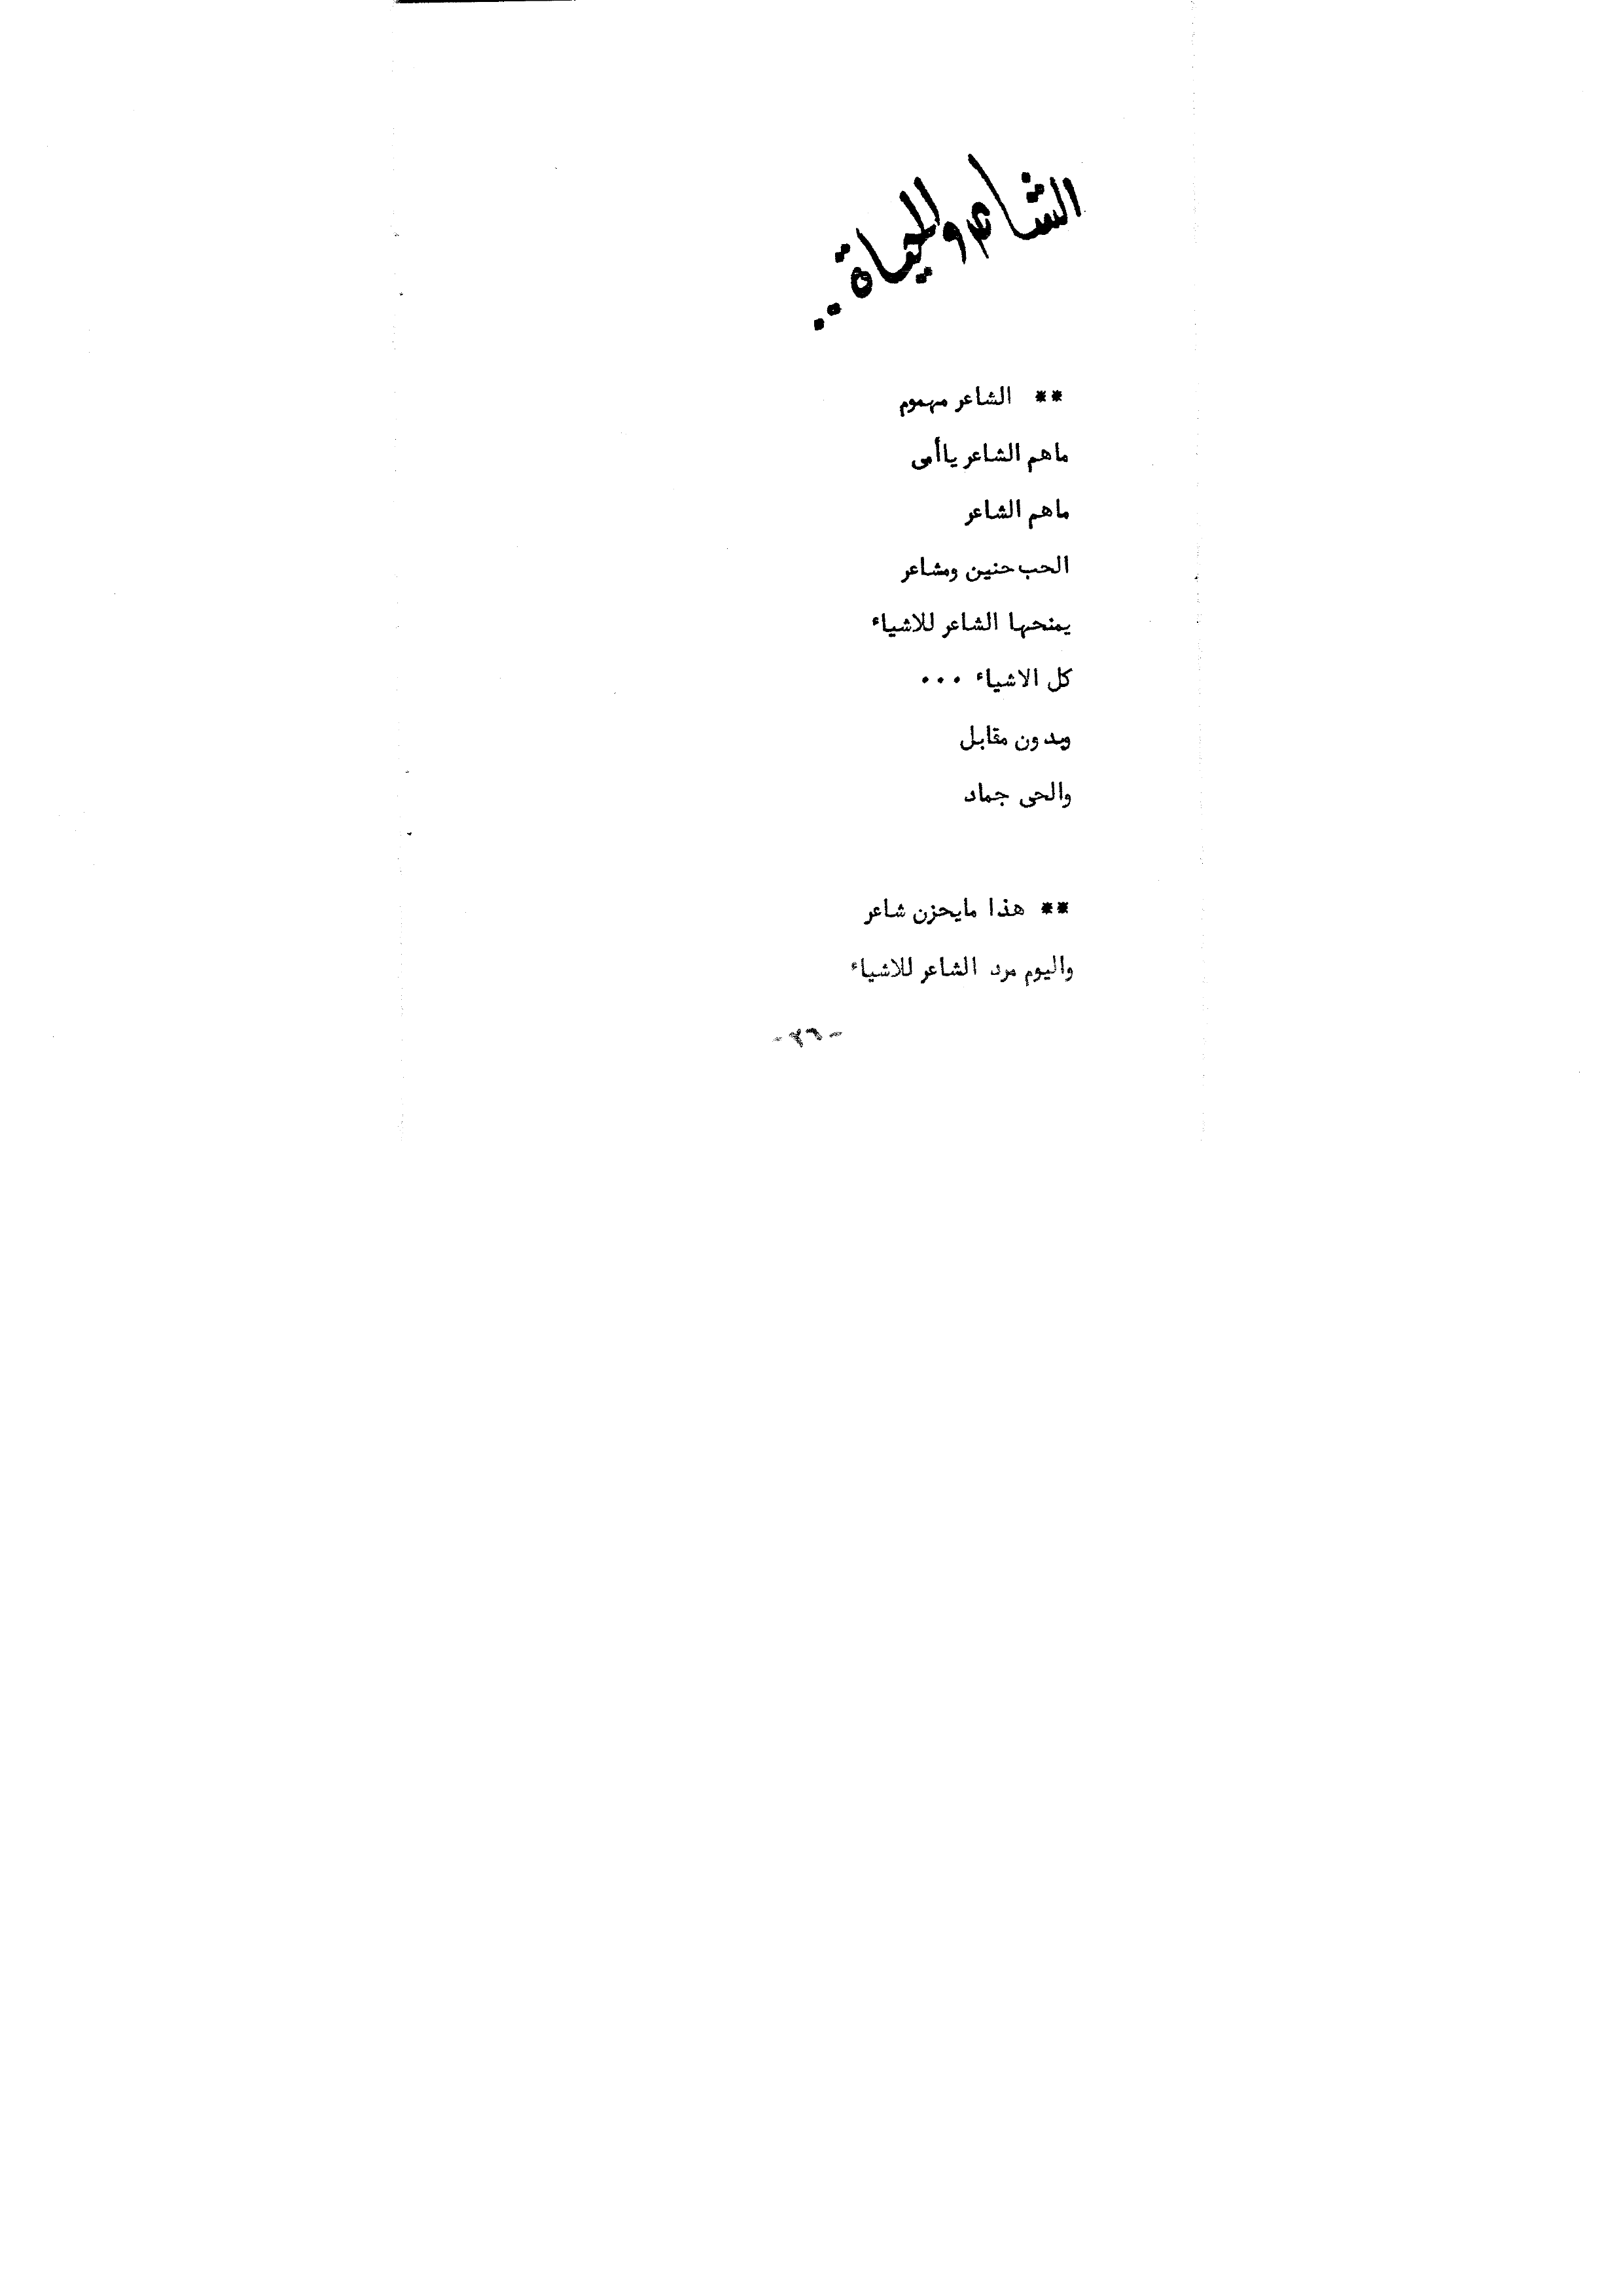 الشاعر والحياة ..
** الشاعر مهموم
ماهم الشاعر ياأمى
ماهم الشاعر
الحب حنين ومشاعر
يمنحها الشاعر للاشياء
كل الاشياء ...
وبدون مقابل
والحى جماد
** هذا مايحزن شاعر
واليوم مرد الشاعر للاشياء
- ٢٦ -